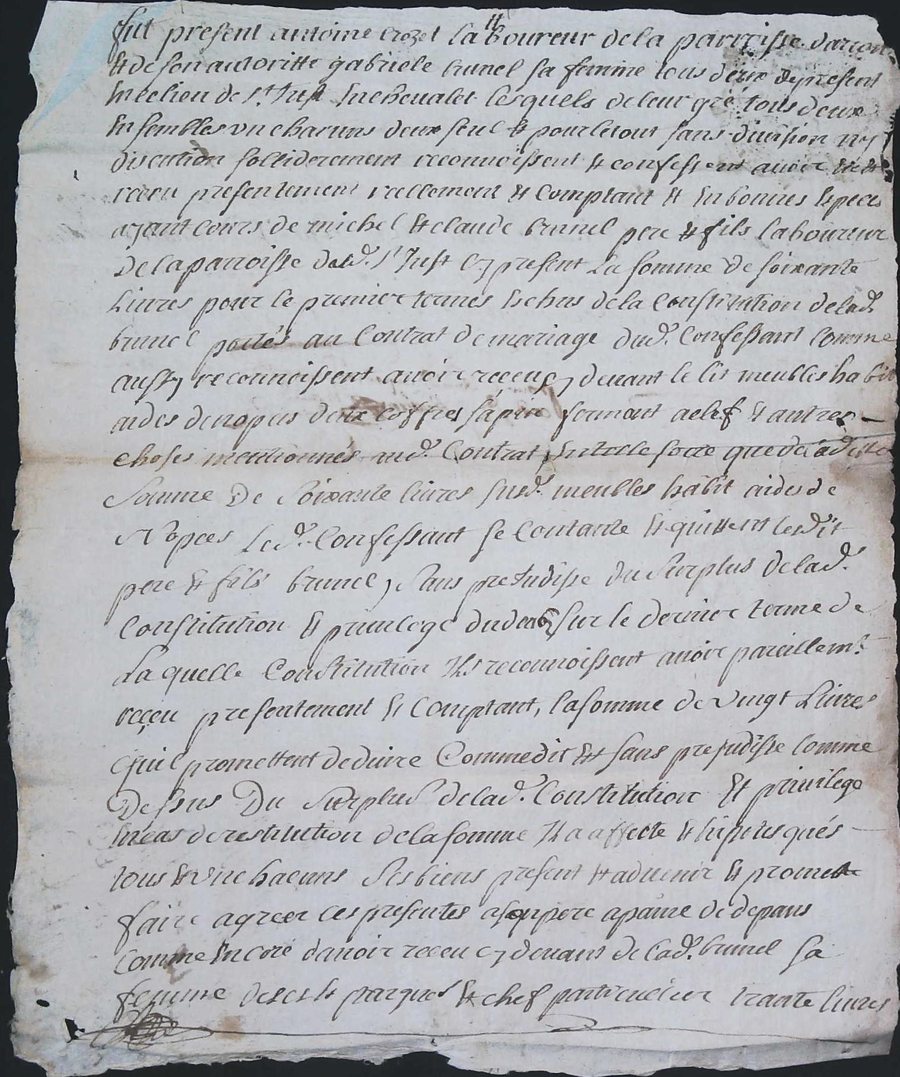 fut present antoine crozet laboureur de la parroisse darcon
et de son autoritte gabriele brunel sa femme tous deux de present
en ce lieu de st Just en chevalet lesquels de leur gré tous deux
ensembles un chacuns deux seul et pour le tout sans division ny
discution solliderement reconnoissent et confessent avoir
receu presentement reallement et comptant et en bonnes especes
ayant cours de michel et claude brunel pere et fils laboureur
de la parroisse dud. st Just cy present la somme de soixante
livres pour le premier termes echus de la Constitution de lad.
brunel portés au Contrat de mariage dud. Confessant comme
aussy reconnoissent avoir receu cy devant le lit meubles habit
aides de nopces deux coffres sapin fermant a clef et autres
choses mentionnés aud. Contrat, en telle sorte que de lad.
somme de soixante livres susd. meubles habit aides de
Nopces Led. Confessant se Contante et quittent lesdit
pere et fils brunel, sans prejudisse du surplus de lad.
Constitution et privilege sur le dernier terme de
La quelle Constitution Ils reconnoissent avoir pareillemt
reçeu presentement et Comptant, la somme de vingt Livres
quil promettent deduire Comme dit et sans prejudisse comme
Dessus Du surplus de lad. Constitution et privilege
en cas de restitution de la somme Il a affecté et hipotequés
tous et un chacuns ses biens present et advenir et promet
faire agreer ces presentes a son pere a paine de depans
Comme encore davoir receu cy devant de Lad. brunel sa
femme de ses et chef particulier trante livres